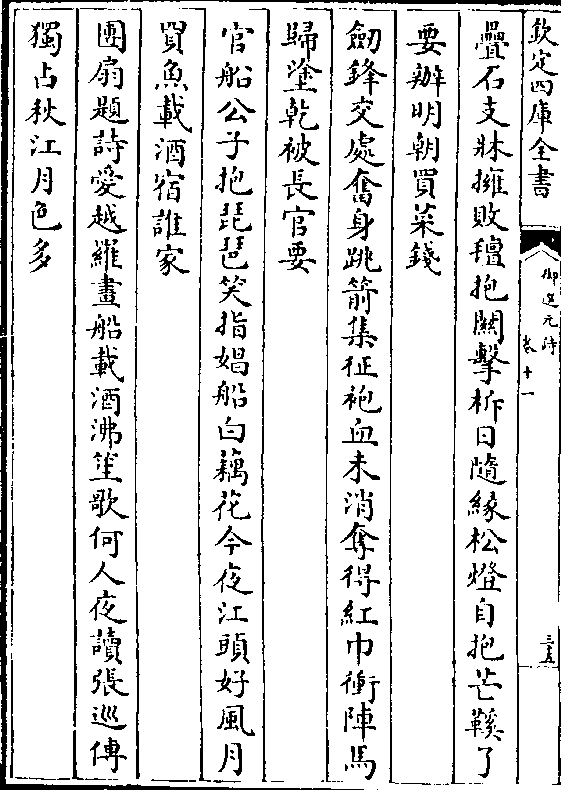 欽定四庫全書
御選元詩
卷十一
三五
疊石支牀擁敗氊抱關擊柝日隨緣松燈自抱芒鞵了
要辦明朝買菜錢
劒鋒交處奮身跳箭集征袍血未消奪得紅巾衝陣馬
歸塗乾被長官要
官船公子抱琵琶笑指娼船白藕花今夜江頭好風月
買魚載酒宿誰家
團扇題詩愛越羅畫船載酒沸笙歌何人夜讀張巡傳
獨占秋江月色多